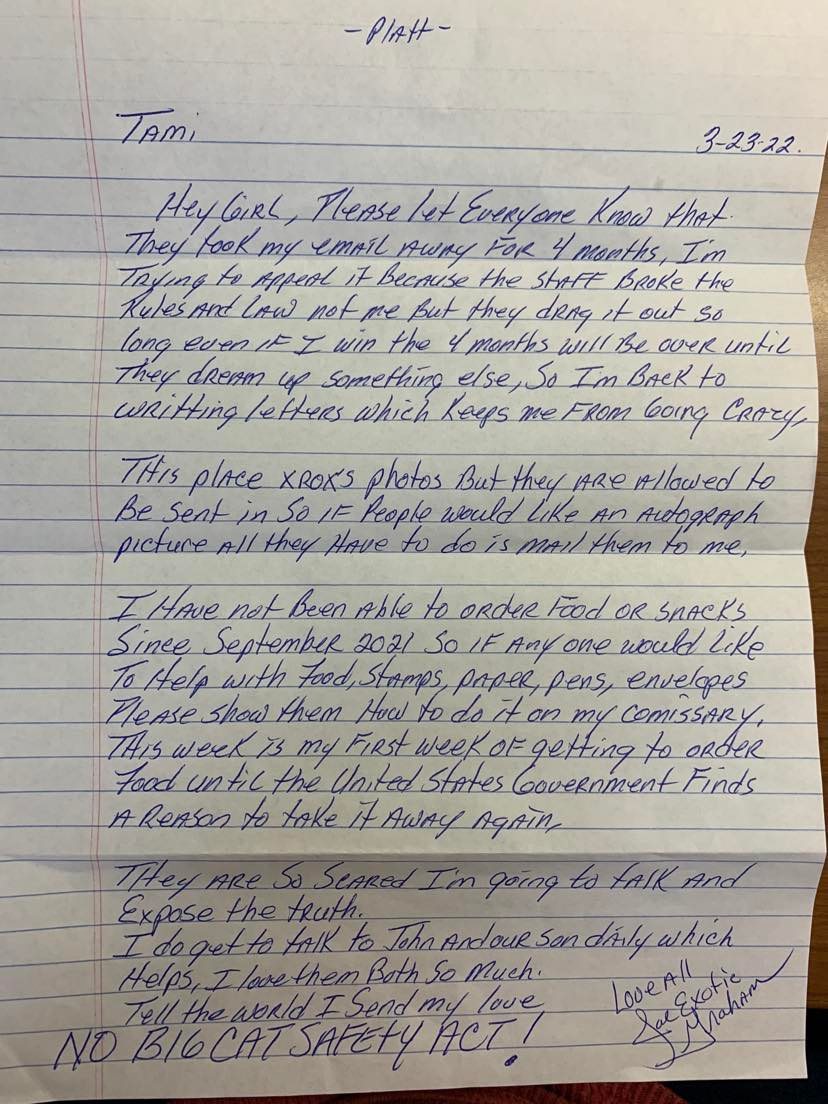 -Platt-
Tami
3-23-22.
Hey Girl, Please let Everyone Know that.
They took my email away for 4 months, I'm
Trying to Appeal it Because the staff Broke the
Rules and Law not me But they drag it out so
long even if I win the 4 months will Be over until
They dream up something else, So I'm Back to
writting letters which keeps me from Going Crazy,
This place xrox's photos But they are allowed to
Be sent in So if People would like an Autograph
picture All they Have to do is mail them to me,
I Have not Been Able to order Food or snacks
Since September 2021 So if Any one would like
To Help with Food, Stamps, paper, pens, envelopes
Please show them How to do it on my Comissary.
This week is my First week of getting to order
Food until the United States Government Finds
A Reason to take it Away Again,
They are So Scared I'm going to talk and
Expose the truth.
I do get to talk to John and our son daily which
Helps, I love them Both So much.
Tell the world I Send my love
Love All
Joe Exotic
NO BIG CAT SAFETY ACT!